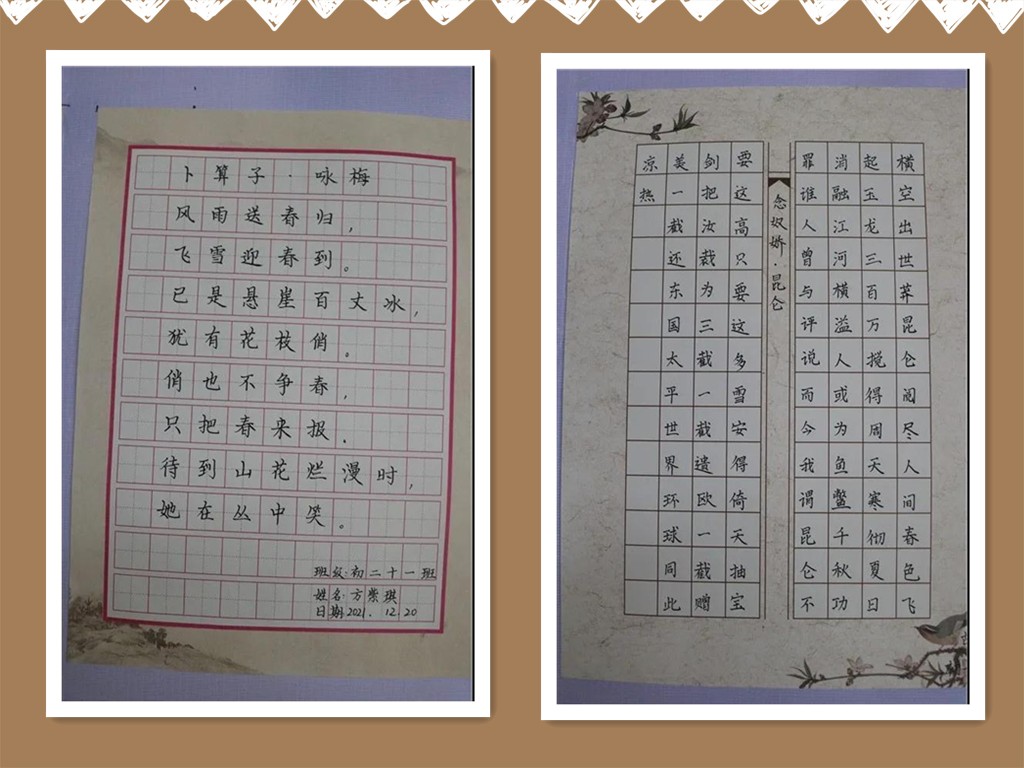 卜算子·咏梅
风雨送春归，
飞雪迎春到。
已是悬崖百丈冰，
犹有花枝俏。
俏也不争春，
只把春来报.
待到山花烂漫时，
她在丛中笑。
班级:初二十一班
姓名:方紫琪
日期2021. 12.20
横空出世莽昆仑阅尽人间春色飞
起玉龙三百万搅得周天寒彻夏日
消融江河横溢人或为鱼鳖千秋功
罪谁人曾与评说而今我谓昆仑不
念奴娇·昆仑
要这高只要这多雪安得倚天抽宝
剑把汝裁为三截一截遗欧一截赠
美一截还东国太平世界环球同此
凉热